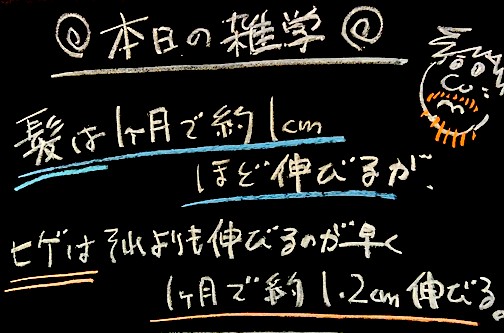 本日の雑学
髪は1ヶ月で約1cm
ほど伸びるが、
ヒゲはそれよりも伸びるのが早く
1ヶ月で約1.2cm伸びる。